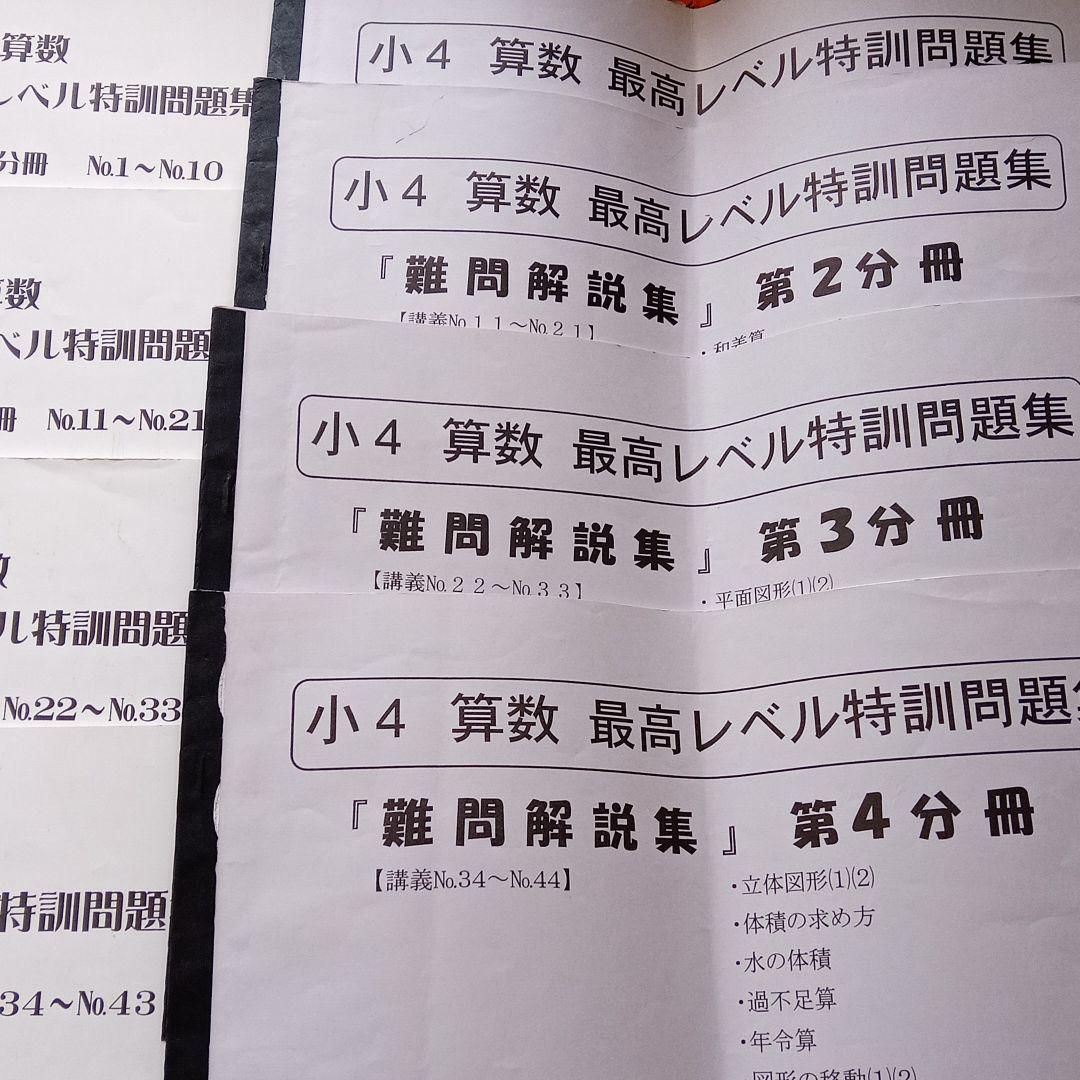 算数
レベル特訓問題集
分冊 №1～№10
算数
ベル特訓問題
冊 №11～№21
数
ル特訓問題
№22～№33
特訓問題
34～№43
小4 算数 最高レベル特訓問題集
小4 算数 最高レベル特訓問題集
『難問解説集』 第2分冊
【講義№11～№21】
・和差算
小4 算数 最高レベル特訓問題集
『難問解説集』 第3分冊
【講義№22～№33】
・平面図形(1)(2)
小4 算数 最高レベル特訓問題集
『難問解説集』 第4分冊
【講義№34～№44】
・立体図形(1)(2)
・体積の求め方
・水の体積
・過不足算
・年令算
・図形の移動(1)(2)